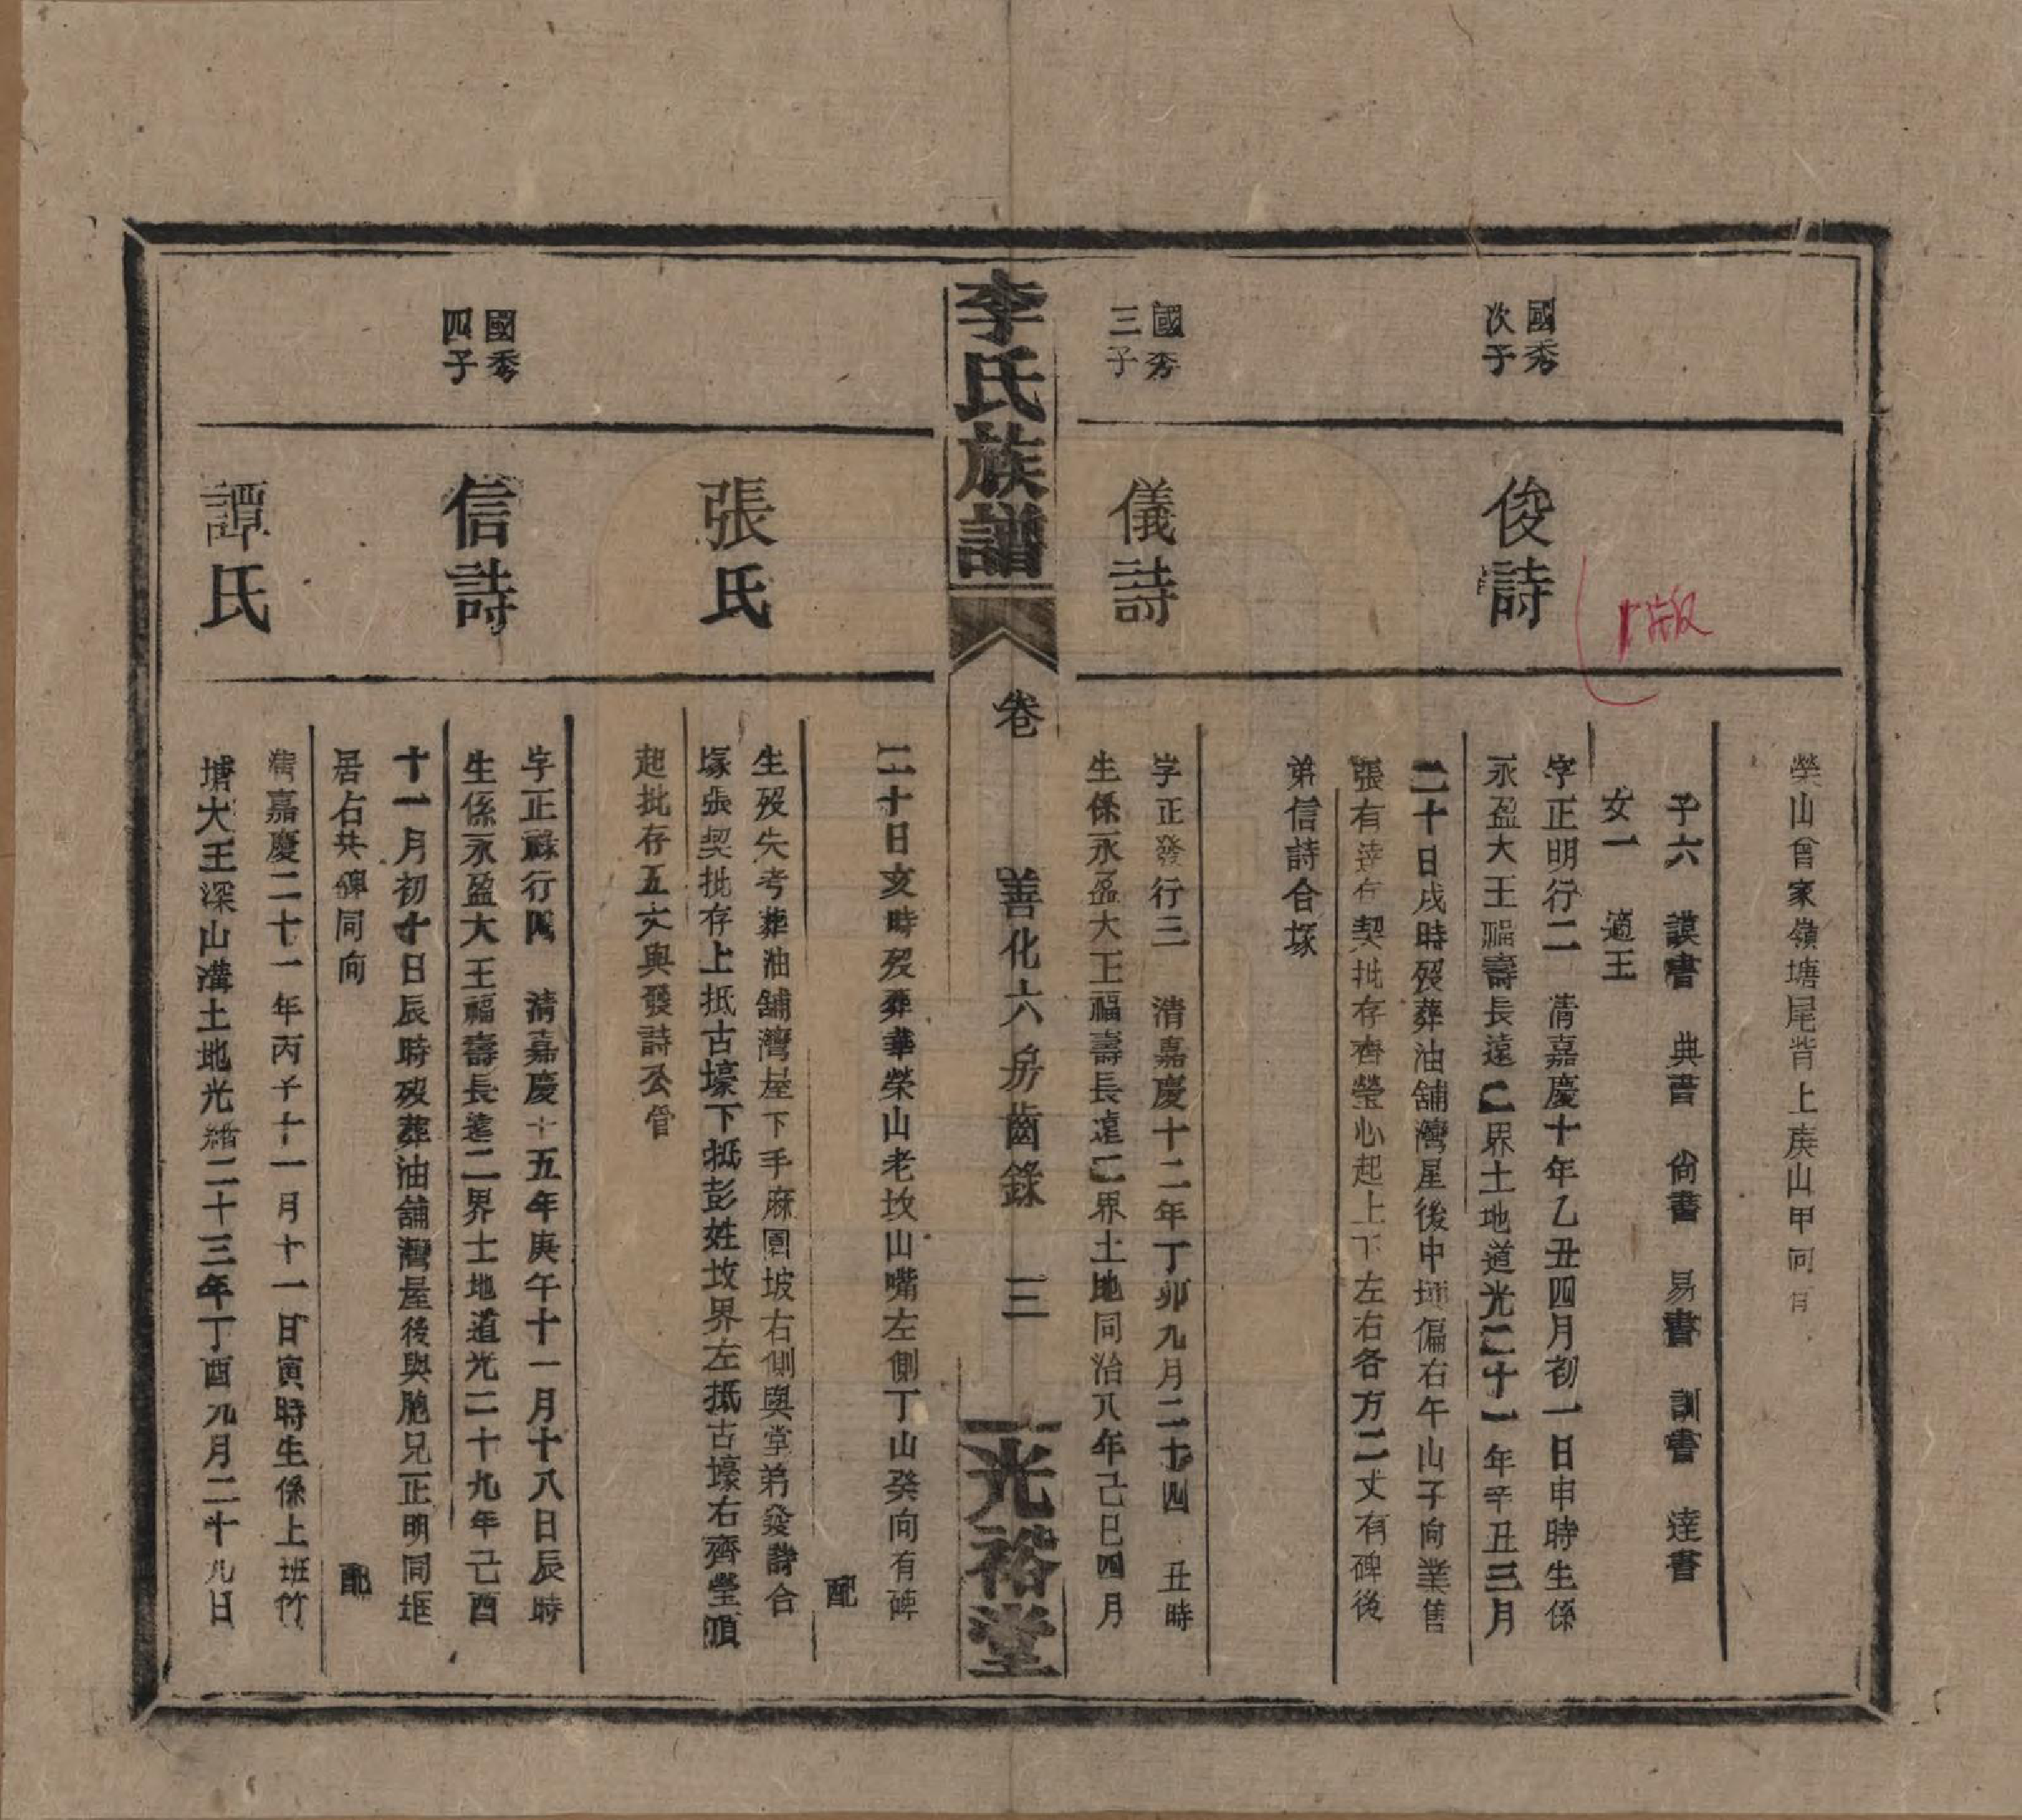 榮山曾家嶺塘尾背上庚山甲向
子六 謨書 典書 尙書 易書 訓書 達書
女一 適王
國秀
次子
俊詩
字正明行二 清嘉慶十年乙丑四月初一日申時生係
永盈大王福壽長遠二界土地道光二十一年辛丑三月
二十日戌時歿葬油舖灣屋後中埂偏右午山子向業售
張有達存契批存齊塋心起上下左右各方二丈有碑後
弟信詩合塚
國秀
三子
儀詩
字正發行三 清嘉慶十二年丁卯九月二十四 丑時
生係永盈大王福壽長遠二界土地同治八年己巳四月
李氏族譜
卷 善化六房齒錄 三
光裕堂
二十日亥時歿葬華榮山老坟山嘴左側丁山癸向有碑
配
張氏
生歿失考葬油舖灣屋下手麻園坡右側與堂弟發詩合
塚張契批存上抵古壕下抵彭姓坟界左抵古壕右齊塋頂
起批存五丈與發詩公管
國秀
四子
信詩
字正祿行四 清嘉慶十五年庚午十一月十八日辰時
生係永盈大王福壽長遠二界土地道光二十九年己酉
十一月初十日辰時歿葬油舖灣屋後與胞兄正明同堆
居右共碑同向
配
譚氏
清嘉慶二十一年丙子十一月十一日寅時生係上班竹
塘大王深山溝土地光緒二十三年丁酉九月二十九日
版